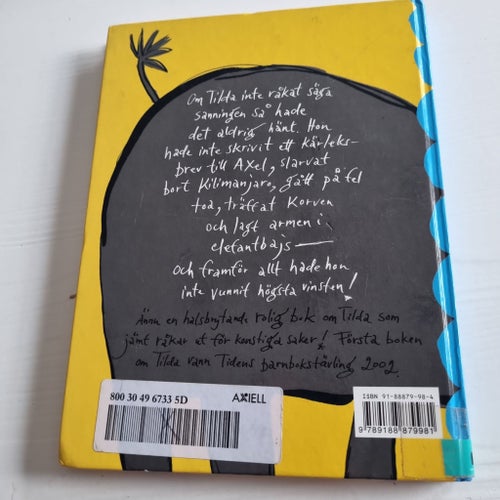 Om Tilda inte råkat säga
sanningen så hade
det aldrig hänt. Hon
hade inte skrivit ett kärleks-
brev till Axel, slarvat
bort Kilimanjaro, gått på fel
toa, träffat Korven
och lagt armen i
elefantbajs —
och framför allt hade hon
inte vunnit högsta vinsten!
Ännu en halsbrytande rolig bok om Tilda som
jämt råkar ut för konstiga saker! Första boken
om Tilda vann Tidens barnbokstävling 2002.
800 30 49 6733 5D
AXIELL
ISBN 91-88879-98-4
9 789188 879981